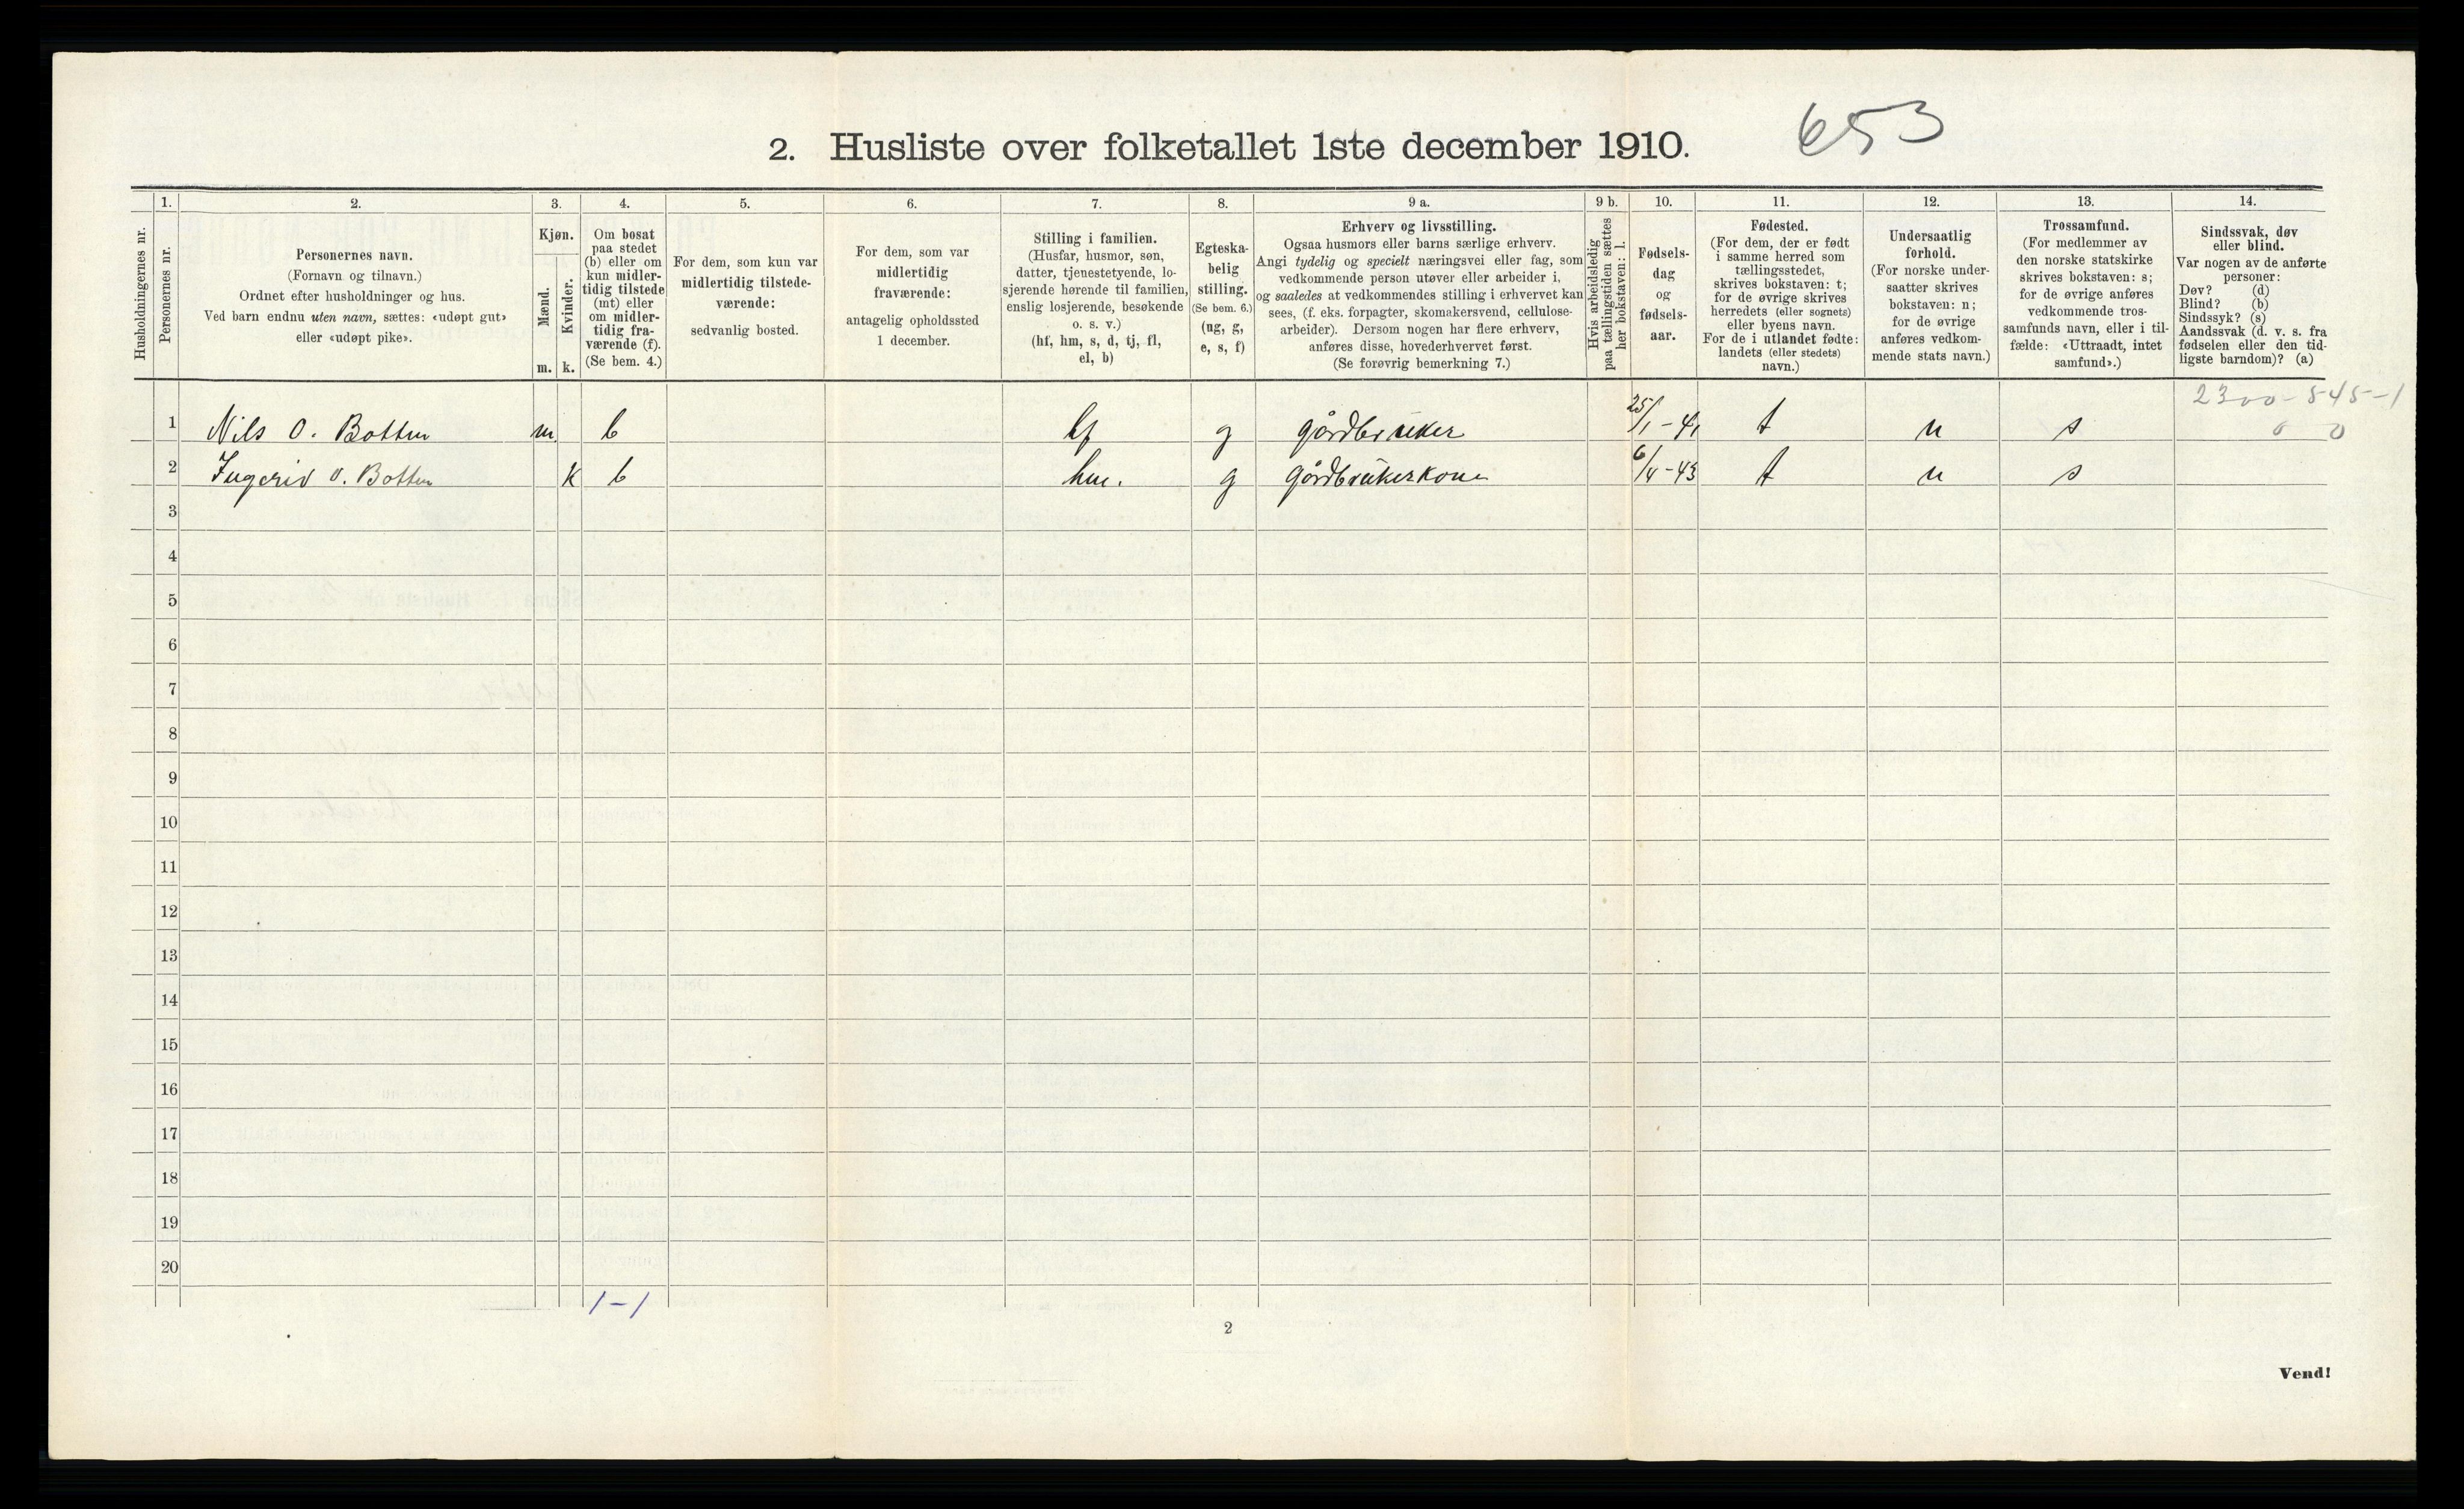 653
2. Husliste over folketallet 1ste december 1910.
Husholdningernes nr.
1.
Personernes nr.
2.
Personernes navn.
(Fornavn og tilnavn.)
Ordnet efter husholdninger og hus.
Ved barn endnu uten navn, sættes: «udøpt gut»
eller «udøpt pike».
3.
Kjøn.
Mænd.
Kvinder.
m. k.
4.
Om bosat
paa stedet
(b) eller om
kun midler-
tidig tilstede
(mt) eller
om midler-
tidig fra-
værende (f).
(Se bem. 4.)
5.
For dem, som kun var
midlertidig tilstede-
værende:
sedvanlig bosted.
6.
For dem, som var
midlertidig
fraværende:
antagelig opholdssted
1 december.
7.
Stilling i familien.
(Husfar, husmor, søn,
datter, tjenestetyende, lo-
sjerende hørende til familien,
enslig losjerende, besøkende
o. s. v.)
(hf, hm, s, d, tj, fl,
el, b)
8.
Egteska-
belig
stilling.
(Se bem. 6.)
(ug, g,
e, s, f)
9 a.
Erhverv og livsstilling.
Ogsaa husmors eller barns særlige erhverv.
Angi tydelig og specielt næringsvei eller fag, som
vedkommende person utøver eller arbeider i,
og saaledes at vedkommendes stilling i erhvervet kan
sees, (f. eks. forpagter, skomakersvend, cellulose-
arbeider). Dersom nogen har flere erhverv,
anføres disse, hovederhvervet først.
(Se forøvrig bemerkning 7.)
9 b.
Hvis arbeidsledig
paa tællingstiden sættes
her bokstaven: l.
10.
Fødsels-
dag
og
fødsels-
aar.
11.
Fødested.
(For dem, der er født
i samme herred som
tællingsstedet,
skrives bokstaven: t;
for de øvrige skrives
herredets (eller sognets)
eller byens navn.
For de i utlandet fødte:
landets (eller stedets)
navn.)
12.
Undersaatlig
forhold.
(For norske under-
saatter skrives
bokstaven: n;
for de øvrige
anføres vedkom-
mende stats navn.)
13.
Trossamfund.
(For medlemmer av
den norske statskirke
skrives bokstaven: s;
for de øvrige anføres
vedkommende tros-
samfunds navn, eller i til-
fælde: «Uttraadt, intet
samfund».)
14.
Sindssvak, døv
eller blind.
Var nogen av de anførte
personer:
Døv? (d)
Blind? (b)
Sindssyk? (s)
Aandssvak (d. v. s. fra
fødselen eller den tid-
ligste barndom)? (a)
2300-545-1
0 0
1 Nils O. Botten m b hf g gårdbruker 25/1-41 t n s
2 Ingerid O. Botten k b hm. g gårdbrukerkone 6/4-43 t n s
3
4
5
6
7
8
9
10
11
12
13
14
15
16
17
18
19
20
1-1
2
Vend!